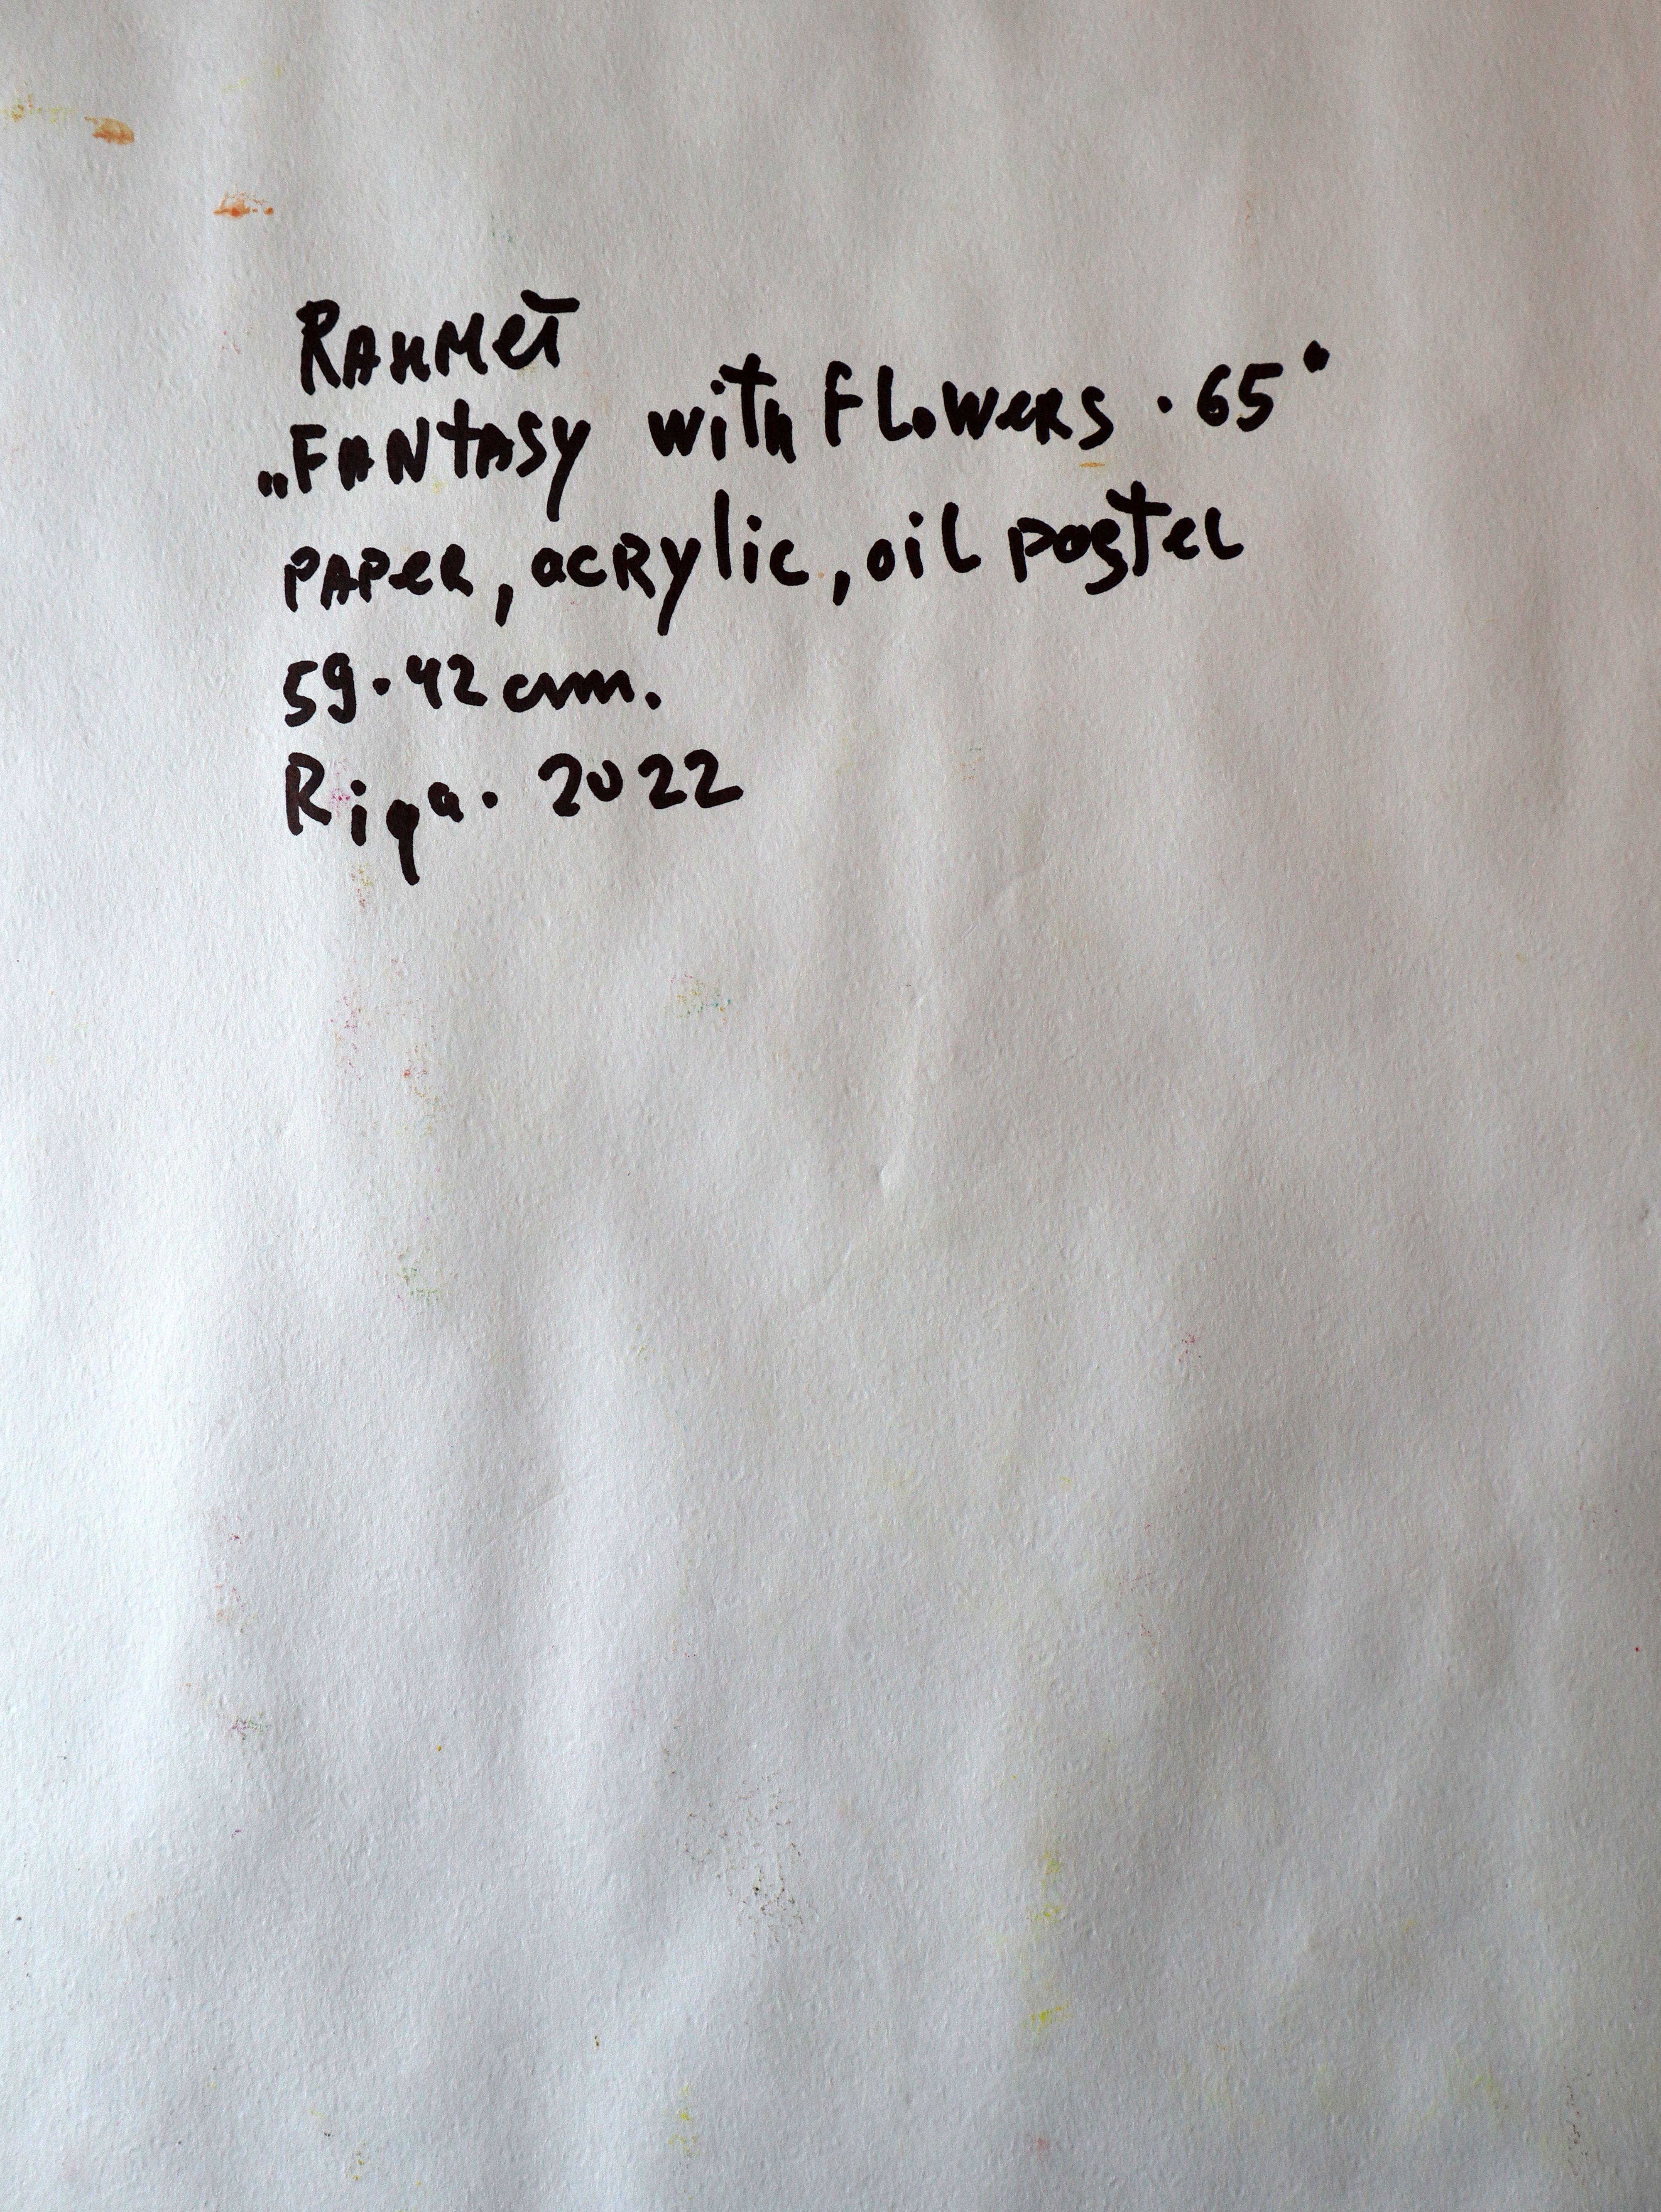 Rahmet
„Fantasy with Flowers · 65"
paper, acrylic, oil pastel
59·42 cm.
Riga · 2022